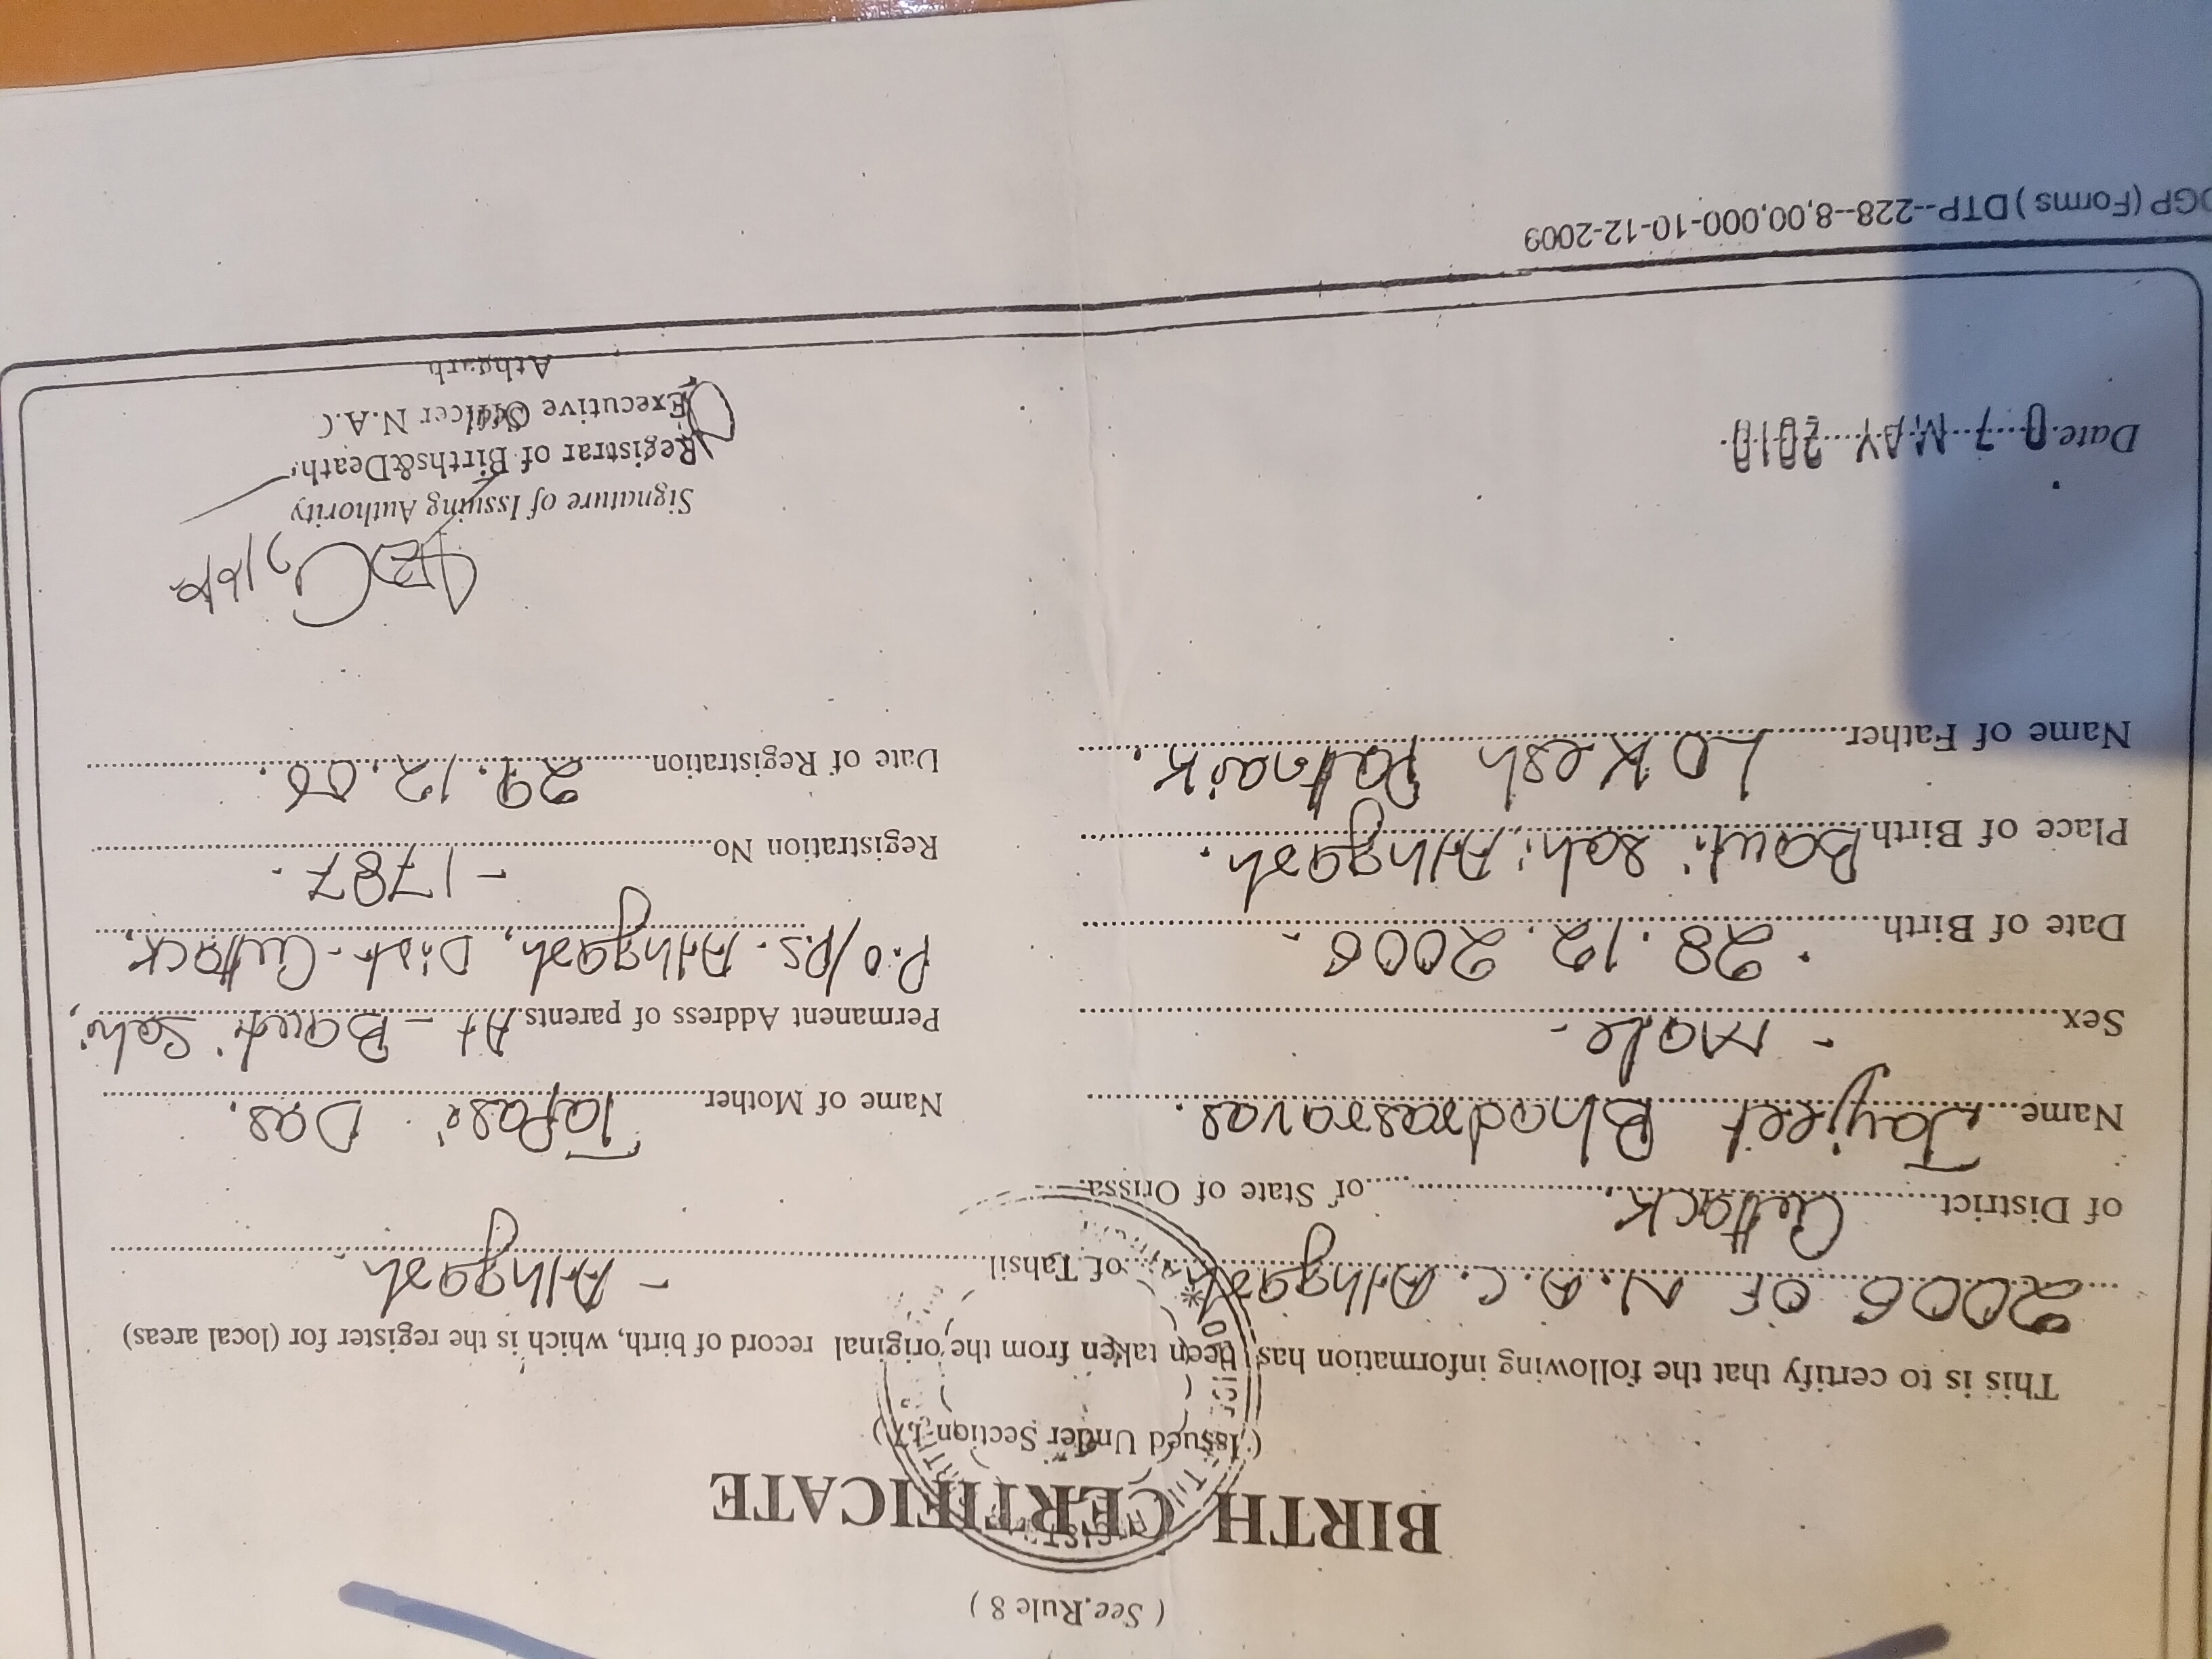 ( See Rule 8 )
BIRTH CERTIFICATE
( Issued Under Section 17 )
This is to certify that the following information has been taken from the original record of birth, which is the register for (local areas)
2006 OF N.A.C. Athgarh of Tahsil - Athgarh.
of District Cuttack of State of Orissa.
Name Jayjeet Bhadrasravas.
Sex - Male -
Date of Birth 28.12.2006.
Place of Birth Bauri Sahi, Athgarh.
Name of Father Lokesh Patnaik.
Name of Mother Tapasi Das.
Permanent Address of parents At - Bauri Sahi,
P.O/P.S. Athgarh, Dist - Cuttack,
Registration No - 1787.
Date of Registration 29.12.06.
Signature of Issuing Authority
Registrar of Births&Death
Executive Officer N.A.C
Athgarh
Date 07 MAY 2010
OGP (Forms) DTP--228--8,00,000-10-12-2009